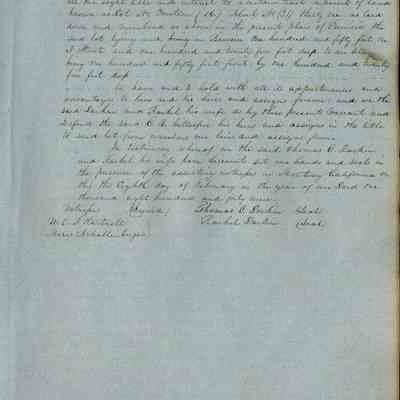 all our right title and interest to a certain tract or parcel of land
known as lot No Fourteen (14) Block No (31) thirty one as laid
down and numbered as above in the present plan of Benicia the
said lot lying and being in Benicia One hundred and fifty feet on
I Street and one hundred and twenty five feet deep to an alley
being one hundred and fifty feet front by one hundred and twenty
five feet deep
To have and to hold with all its appurtenances and
advantages to him and his heirs and assigns forever and we the
said Larkin and Rachel his wife do by these presents Warrant and
Defend the said his heirs and assigns in the title
to said lot from ourselves our heirs and assigns forever
In testimony whereof we the said Thomas O. Larkin
and Rachel his wife have hereunto set our hands and seals in
the presence of the attesting witnesses in Monterey California on
this the Eighth day of February in the year of our Lord One
thousand eight hundred and forty nine
Witness (Signed) Thomas O. Larkin (Seal)
W. E. P. Hartnell Rachel Larkin (Seal)
Moses Schallenberger